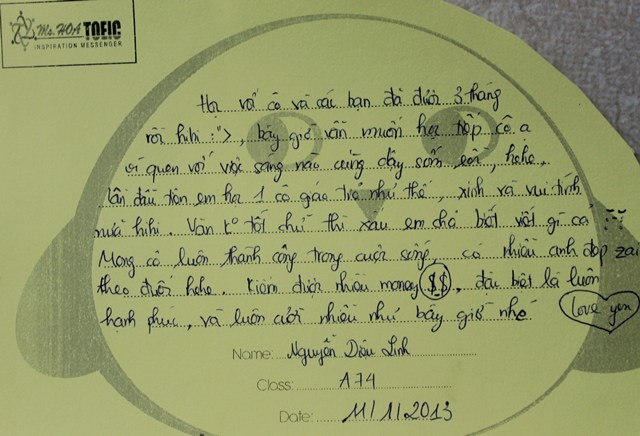 Ms. HOA TOEIC
INSPIRATION MESSENGER
Học với cô và các bạn đã được 3 tháng
rồi hihi :">, bây giờ vẫn muốn học tiếp cô ạ
vì quen với việc sáng nào cũng dậy sớm rồi, hehe,
lần đầu tiên em học 1 cô giáo trẻ như thế, xinh và vui tính
nữa hihi. Văn tốt chứ thì xấu em chả biết viết gì cả
Mong cô luôn thành công trong cuộc sống, có nhiều anh đẹp zai
theo đuổi hehe. Kiếm được nhiều money $$, đặc biệt là luôn
hạnh phúc, và luôn cười nhiều như bây giờ nhé
love you
Name: Nguyễn Diệu Linh
Class: A74
Date: 11/1/2013